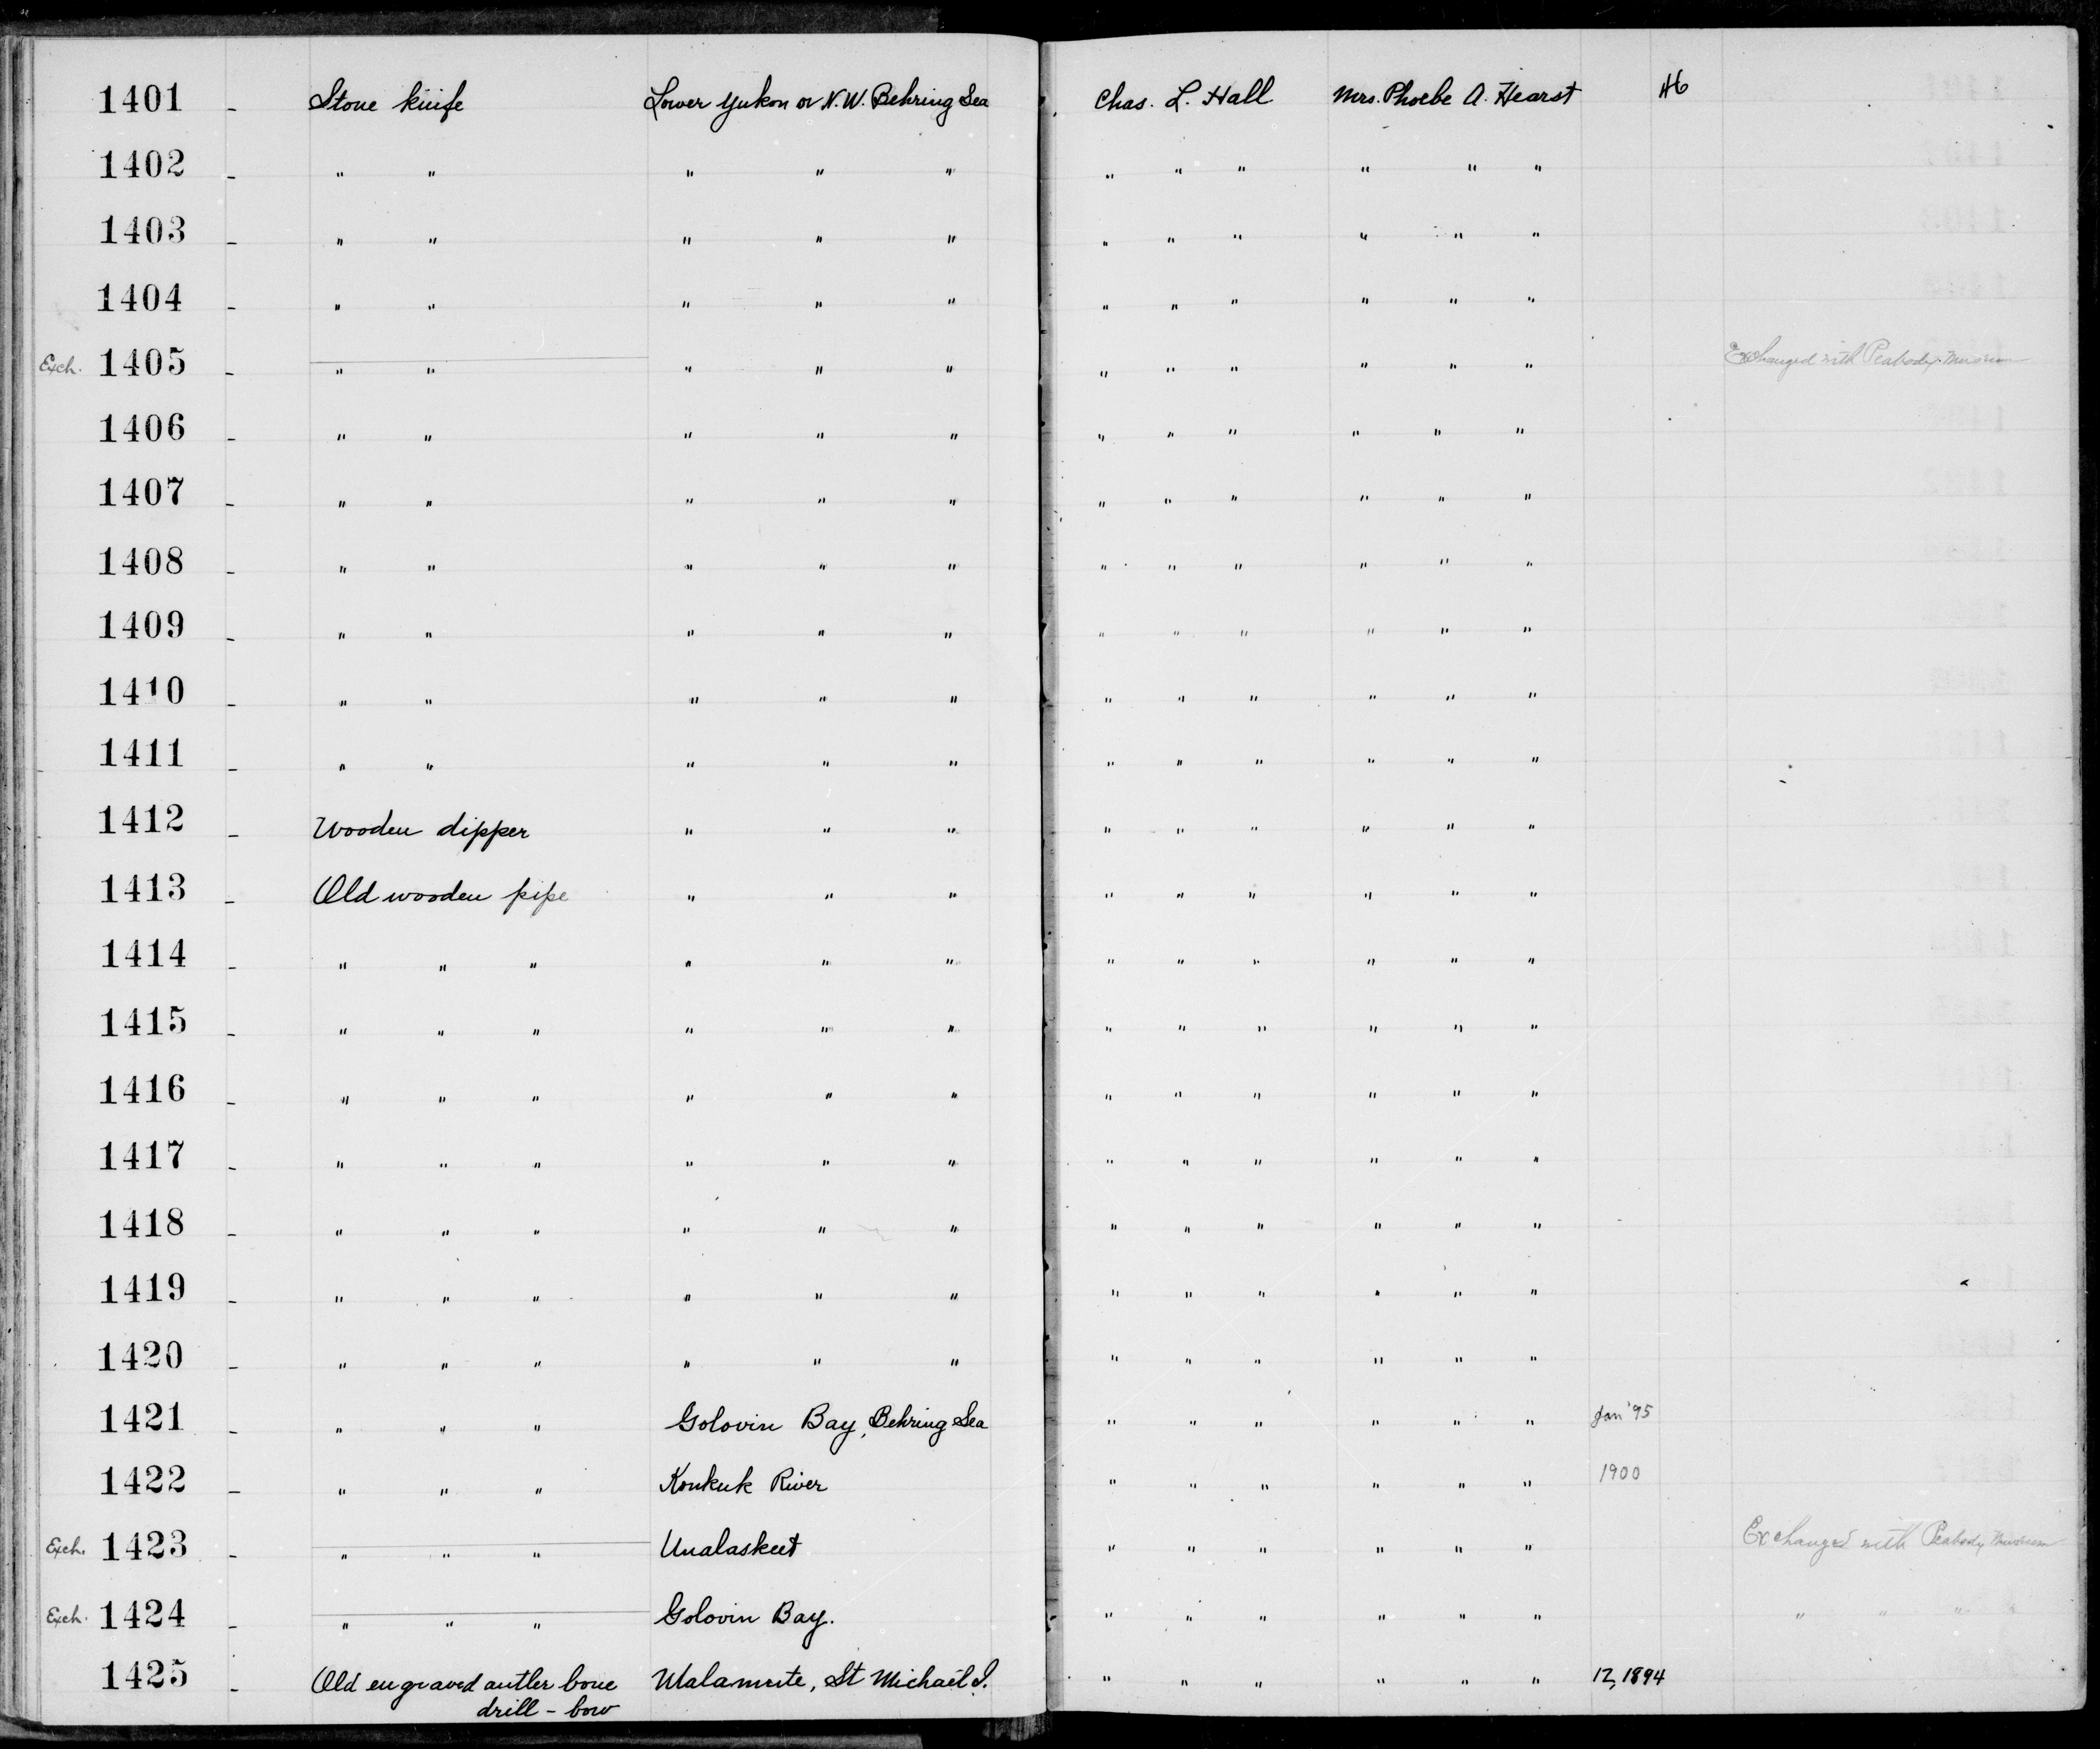 1401 - Stone knife Lower Yukon or N.W. Behring Sea Chas. L. Hall Mrs. Phoebe A. Hearst 46
1402 - " " " " " " " " " " "
1403 - " " " " " " " " " " "
1404 - " " " " " " " " " " "
Exch. 1405 - " " " " " " " " " " " Exchanged with Peabody Museum
1406 - " " " " " " " " " " "
1407 - " " " " " " " " " " "
1408 - " " " " " " " " " " "
1409 - " " " " " " " " " " "
1410 - " " " " " " " " " " "
1411 - " " " " " " " " " " "
1412 - Wooden dipper " " " " " " " " "
1413 - Old wooden pipe " " " " " " " " "
1414 - " " " " " " " " " " " "
1415 - " " " " " " " " " " " "
1416 - " " " " " " " " " " " "
1417 - " " " " " " " " " " " "
1418 - " " " " " " " " " " " "
1419 - " " " " " " " " " " " "
1420 - " " " " " " " " " " " "
1421 - " " " Golovin Bay, Behring Sea " " " " " " Jan '95
1422 - " " " Konkuk River " " " " " " 1900
Exch. 1423 - " " " Unalaskeet " " " " " " Exchanged with Peabody Museum
Exch. 1424 - " " " Golovin Bay. " " " " " " " " " "
1425 - Old engraved antler bone Malamute, St Michael I. " " " " " " 12, 1894
drill - bow